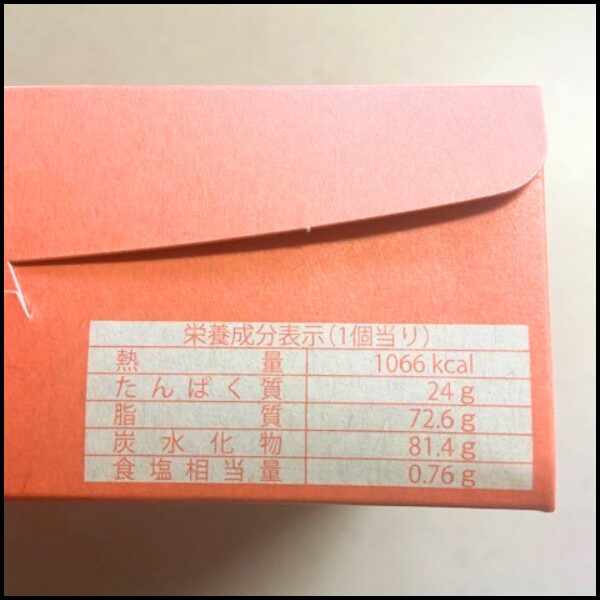 栄養成分表示(1個当り)
熱量 1066 kcal
たんぱく質 24 g
脂質 72.6 g
炭水化物 81.4 g
食塩相当量 0.76 g